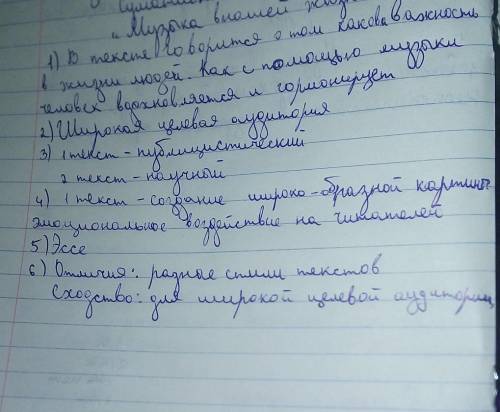 "Музыка в нашей жизни
1) В тексте говорится о том какова важность
в жизни людей. Как с помощью музыки
человек вдохновляется и гормонирует
2) Широкая целевая аудитория
3) 1 текст - публицистический
2 текст - научный
4) 1 текст - создание широко-образной картины
эмоциональное воздействие на читателей
5) Эссе
6) Отличия: разные стили текстов
Сходство: для широкой целевой аудитории